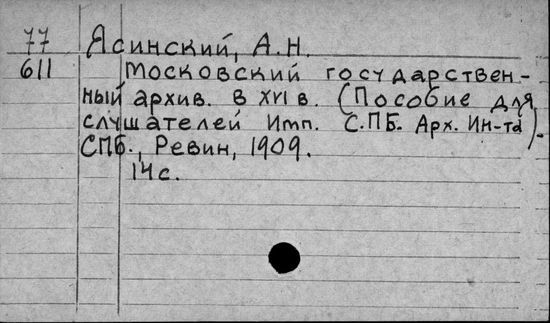 77 Ясинский, А.Н.
611 Московский государствен-
ный архив. в XVI в. (Пособие для
слушателей Имп. С.ПБ. Арх. Ин-та).
СПб., Ревин, 1909.
14 с.